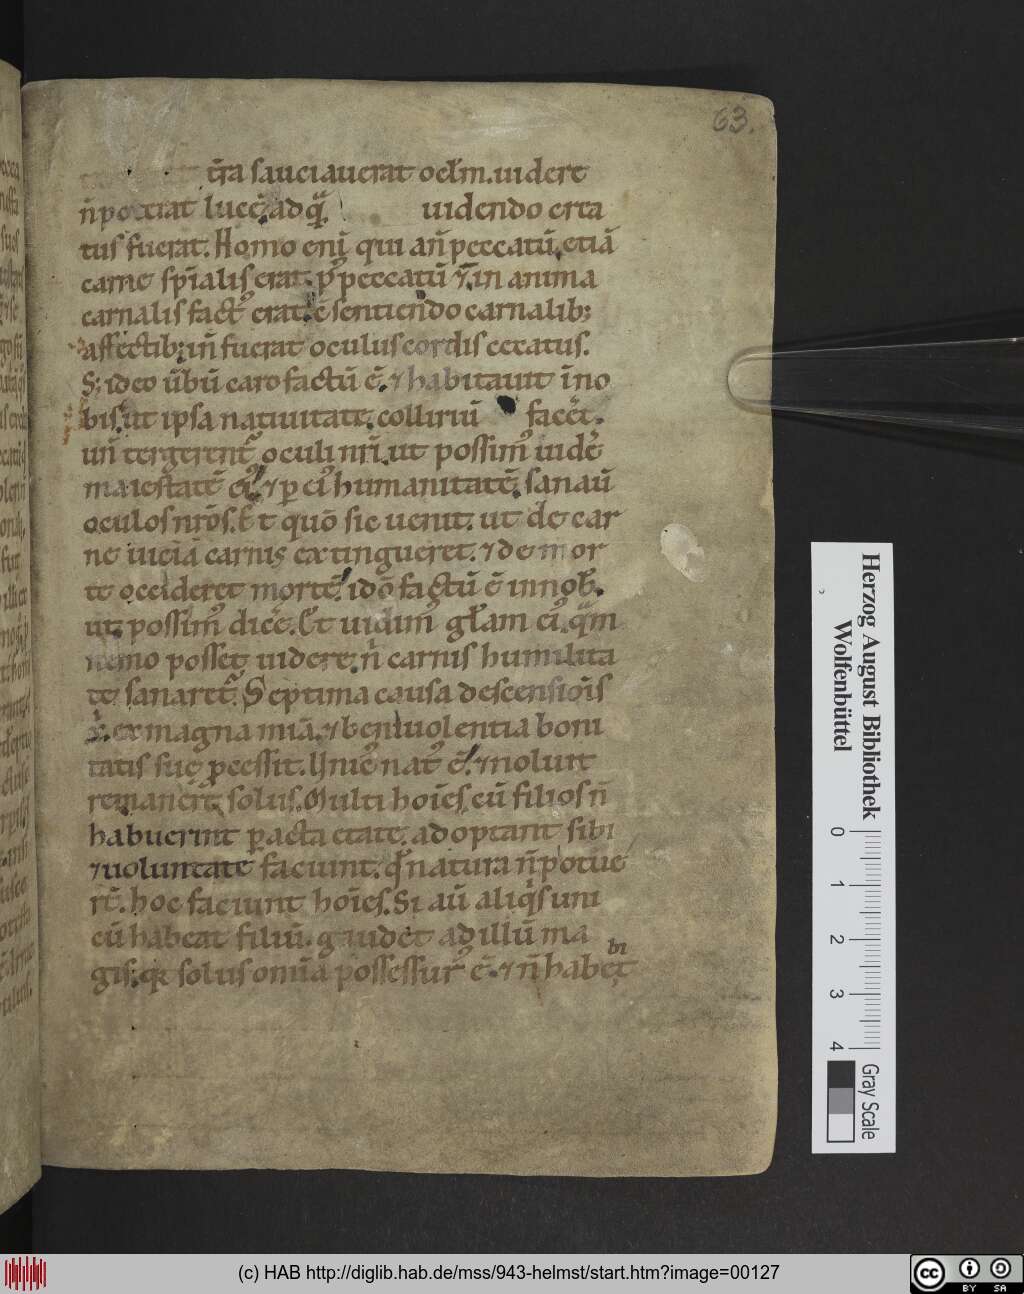 63.
t̄ra sauciauerat ocl̄m. uidere
n̄ poterat lucē. ad q̄ uidendo crea
tus fuerat. Homo eni̅ qui an̄ peccatū. etiā
carne sp̄ialis erat. p᷒ peccatū ⁊ in anima
carnalis fact᷒ erat. ē sentiendo carnalib;
affectib; in̄ fuerat oculus cordis cecatus.
S; ideo ūbū caro factū ē. ⁊ habitauit īno
bis. ut ipsa natiuitate. colliriū facēt.
un̄ tergerent᷒ oculi nr̄i. ut possim᷒ uidē
maiestatē ei᷒. ⁊ ꝑ ei᷒ humanitatē. sanaū
oculos nr̄os. Et quō sic uenit. ut de car
ne uiciā carnis extingueret. ⁊ de mor
te occideret mortē. idō factū ē innob̄.
ut possim᷒ dicē. Et uidim᷒ gl̄am ei᷒. q̄m
nemo posset uidere. n̄ carnis humilita
te sanaret᷒. Septima causa descensiōis
ē. ex magna miā. ⁊ beniuolentia boni
tatis suę ꝓcessit. Unic᷒ nat᷒ ē. ⁊ noluit
remanēt solus. Multi hoīes. cū filios n̄
habuerint ꝑacta etate. adoptant sibi
⁊ uoluntate faciunt. q̄ natura n̄ potue
rt̄. hoc faciunt hoīes. Si aū aliq̄s uni
cū habeat filiū. gaudet ad illū ma
gis. qꝛ solus omīa possessur᷒ ē. ⁊ n̄ habebit
Herzog August Bibliothek
Wolfenbüttel
0 1 2 3 4
Gray Scale
(c) HAB http://diglib.hab.de/mss/943-helmst/start.htm?image=00127
cc BY SA